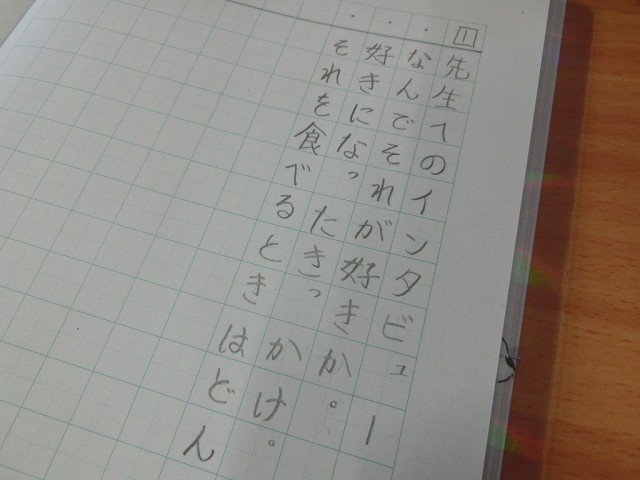 1 先生へのインタビュー
・なんでそれが好きか。
・好きになったきっかけ。
・それを食べるときはどん